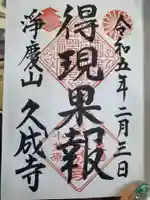 令和五年二月三日
得現果報
淨慶山 久成寺